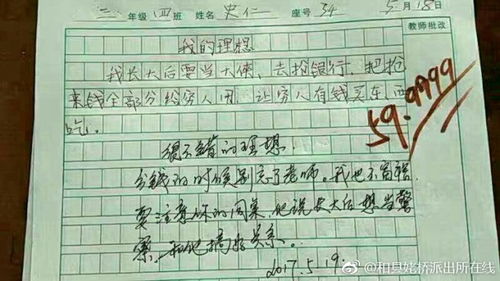 三年级四班 姓名史仁 座号34 5月18日
教师批改
我的理想
我长大后要当大侠、去抢银行、把抢
来钱全部分给穷人用、让穷人有钱买东西
吃。
59.9999
很不错的理想
分钱的时候别忘了老师。我也不富裕
要注意你的同桌,他说长大后想当警
察,和他搞好关系。
2017.5.19.
@和县姥桥派出所在线